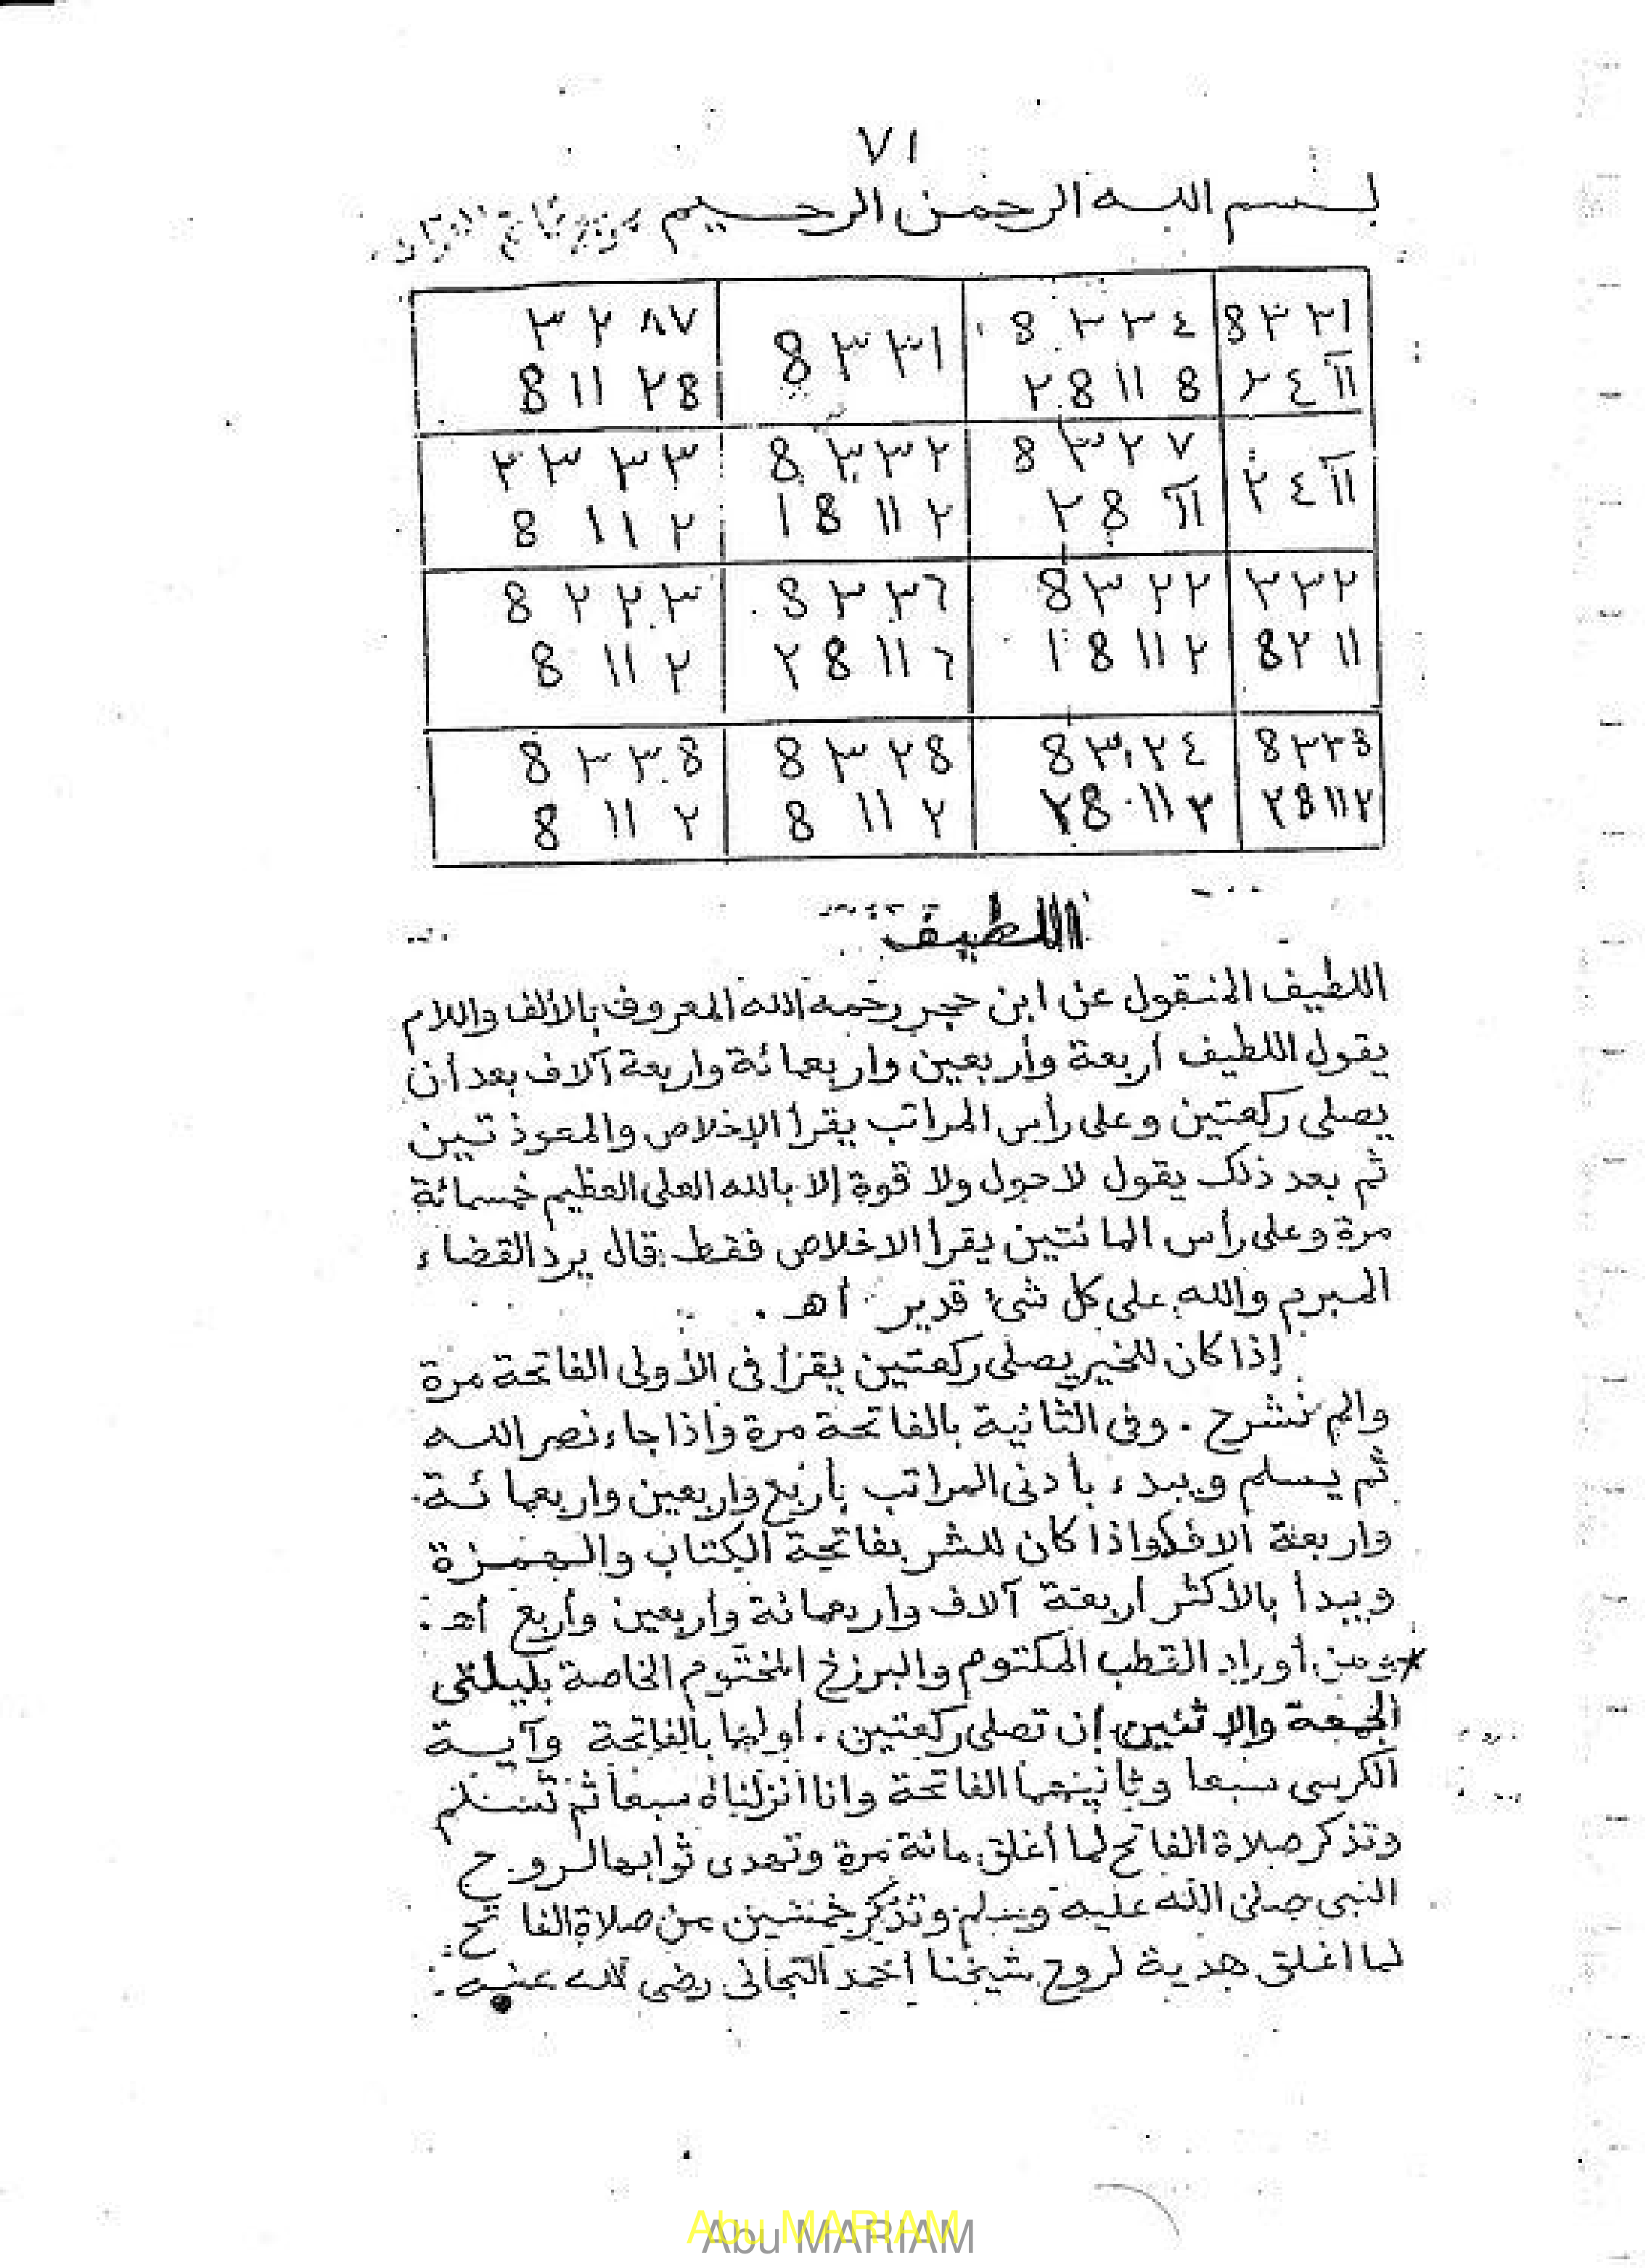 ٧١
بسم الله الرحمن الرحيم
٨٧ ٢ ٣
8 ١١ ٢ 8
8 ٣ ٣ ٣١
8 ٣ ٢ ٤
٢ 8 ١١ 8
8 ٣ ٢ ٢١
٢ ٤ ١١
٣ ٣ ٣ ٣
8 ١١ ٢
8 ٣ ٣ ٢
١ 8 ١١ ٢
8 ٣ ٢ ٧
٢ 8 ١١
٢ ٤ ١١
8 ٢ ٢ ٣
8 ١١ ٢
8 ٣ ٢ ٦
٢ 8 ١١ ٦
8 ٣ ٢ ٢
١ 8 ١١ ٢
٣ ٣ ٢
8 ٢ ١١
8 ٣ ٣ 8
8 ١١ ٢
8 ٣ ٢ 8
8 ١١ ٢
8 ٣ ٢ ٤
٢ 8 ١١ ٢
٢ 8 ١١ ٢
اللطيف
اللطيف المنقول عن ابن حجر رحمه الله المعروف بالألف واللام
يقول اللطيف أربعة وأربعين واربعمائة واربعة آلاف بعد أن
يصلى ركعتين وعلى رأس المراتب يقرأ الإخلاص والمعوذتين
ثم بعد ذلك يقول لا حول ولا قوة إلا بالله العلى العظيم خمسمائة
مرة وعلى رأس المائتين يقرا الاخلاص فقط قال يرد القضاء
المبرم والله على كل شئ قدير أهـ .
إذا كان للخير يصلى ركعتين يقرأ فى الأولى الفاتحة مرة
والم نشرح . وفى الثانية بالفاتحة مرة واذا جاء نصر الله
ثم يسلم ويبدء بأدنى المراتب بأربع واربعين واربعمائة
واربعة الاف واذا كان للشر بفاتحة الكتاب والهمزة
ويبدأ بالأكثر أربعة آلاف وأربعمائة وأربعين وأربع أهـ .
* ومن أوراد القطب المكتوم والبرزخ المختوم الخاصة بليلتى
الجمعة والإثنين أن تصلى ركعتين . أولهما بالفاتحة وآية
الكرسى سبعا وثانيهما الفاتحة وانا أنزلناه سبعا ثم تسلم
وتذكر صلاة الفاتح لما أغلق مائة مرة وتهدى ثوابها لروح
النبى صلى الله عليه وسلم وتذكر خمسين من صلاة الفاتح
لما اغلق هدية لروح شيخنا أحمد التجانى رضى الله عنه
Abu MARIAM
Abu MARIAM